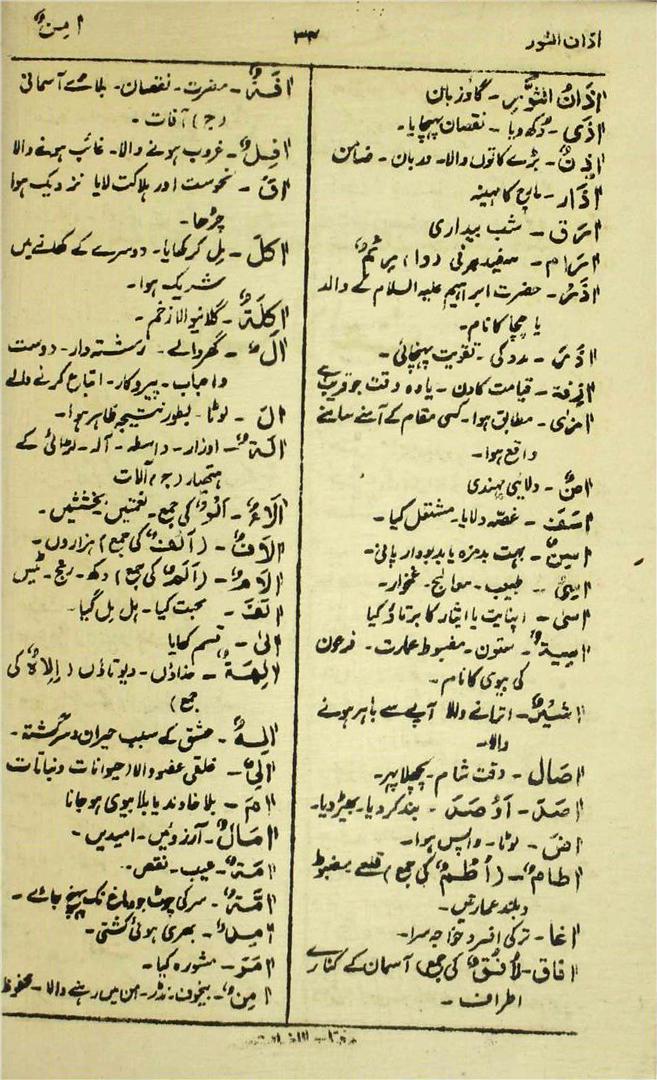 اذان الثور
۳۲
اٰمِنٌ
اٰذَانُ الثَّوْرِ۔ گاؤ زبان
اٰذٰی۔ دُکھ دیا۔ نقصان پہنچایا۔
اٰذِنٌ۔ بڑے کانوں والا۔ دربان۔ ضامن
اٰذَار۔ مارچ کا مہینہ
اٰرَق۔ شب بیداری
اٰرَام۔ سفید ہرنی (وا) رِئْمٌ
اٰذَرُ۔ حضرت ابراہیم علیہ السلام کے والد
یا چچا کا نام۔
اٰزَرَ۔ مدد کی۔ تقویت پہنچائی۔
اٰزِفَة۔ قیامت کا دن۔ یا وہ وقت جو قریب ہے
اٰزٰی۔ مطابق ہوا۔ کسی مقام کے آمنے سامنے
واقع ہوا۔
اٰسٌ۔ ولایتی مہندی
اٰسَفَ۔ غصّہ دلایا۔ مشتعل کیا۔
اٰسِنٌ۔ بہت بدمزہ یا بدبودار پانی۔
اٰسِیٌ۔ طبیب۔ معالج۔ غمخوار۔
اٰسٰی۔ اپنایت یا ایثار کا برتاؤ کیا
اٰسِیَةٌ۔ ستون۔ مضبوط عمارت۔ فرعون
کی بیوی کا نام۔
اٰشِرٌ۔ اترانے والا آپے سے باہر ہونے
والا۔
اٰصَال۔ وقت شام۔ پچھلا پہر۔
اٰصَدَ۔ اَوْصَدَ۔ بند کر دیا۔ بھیڑ دیا۔
اٰضَ۔ لوٹا۔ واپس ہوا۔
اٰطَامٌ۔ (اُطُمٌ کی جمع) قلعے مضبوط
و بلند عمارتیں۔
اٰغا۔ ترکی افسر و خواجہ سرا۔
اٰفاق۔ (اُفُقٌ کی جمع) آسمان کے کنارے
اطراف۔
اٰفَةٌ۔ مضرت۔ نقصان۔ بلائے آسمانی
(ج) آفات۔
اٰفِلٌ۔ غروب ہونے والا۔ غائب ہونے والا
اٰقَ۔ نحوست اور ہلاکت لایا۔ نزدیک ہوا
چڑھا۔
اٰکَلَ۔ مل کر کھایا۔ دوسرے کے کھانے میں
شریک ہوا۔
اٰکِلَةٌ۔ گلانیوالا زخم۔
اٰلٌ۔ گھر والے۔ رشتہ دار۔ دوست
و احباب۔ پیروکار۔ اتباع کرنے والے
اٰلَ۔ لوٹا۔ بطور نتیجہ ظاہر ہوا۔
اٰلَةٌ۔ اوزار۔ واسطہ۔ آلہ۔ لڑائی کے
ہتھیار (ج) آلات
اٰلَاءٌ۔ اَلْوٌ کی جمع۔ نعمتیں بخششیں۔
اٰلَافٌ۔ (اَلْفٌ کی جمع) ہزاروں۔
اٰلَامٌ۔ (اَلَمٌ کی جمع) دکھ۔ رنج۔ ٹیس
اٰلَفَ۔ محبت کیا۔ ہل مل گیا۔
اٰلیٰ۔ قسم کھایا
اٰلِهَةٌ۔ خداؤں۔ دیوتاؤں (اِلٰهٌ کی
جمع)
اٰلِهٌ۔ عشق کے سبب حیران و سرگشتہ۔
اٰلِیٌ۔ خلقی عضو والا (حیوانات و نباتات
اٰمَ۔ بلا خاوند یا بلا بیوی ہو جانا
اٰمَالٌ۔ آرزوئیں۔ امیدیں۔
اٰمَةٌ۔ عیب۔ نقص۔
اٰمَّةٌ۔ سر کی چوٹ جو دماغ تک پہنچ جائے۔
اٰمِدٌ۔ بھری ہوئی کشتی۔
اٰمَرَ۔ مشورہ کیا۔
اٰمِنٌ۔ بیخوف۔ نڈر۔ امن میں رہنے والا۔ محفوظ